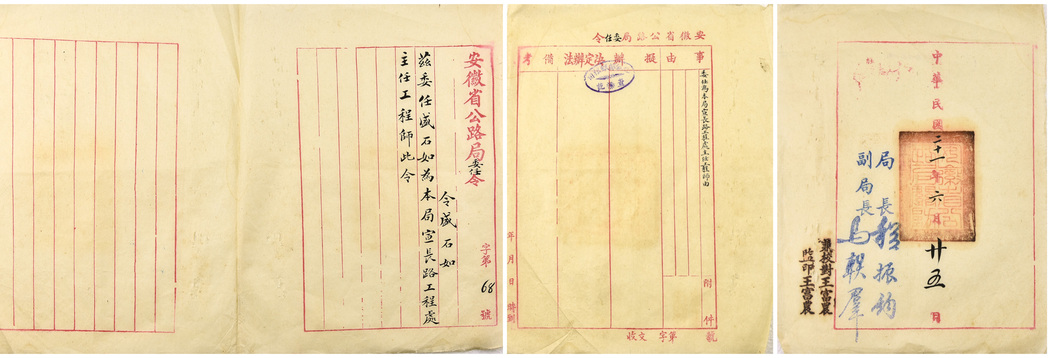 安徽省公路局委任令
字第68號
令盛石如
茲委任盛石如為本局宣長路工程處
主任工程師此令
安徽省公路局委任令
事由
擬辦
決定辦法
備考
委任為本局宣長路工程處主任工程師由
附件
年月日時到
收文字第號
中華民國二十一年六月廿五日
局長程振鈞
副局長
兼校對王富晨
監印王富晨